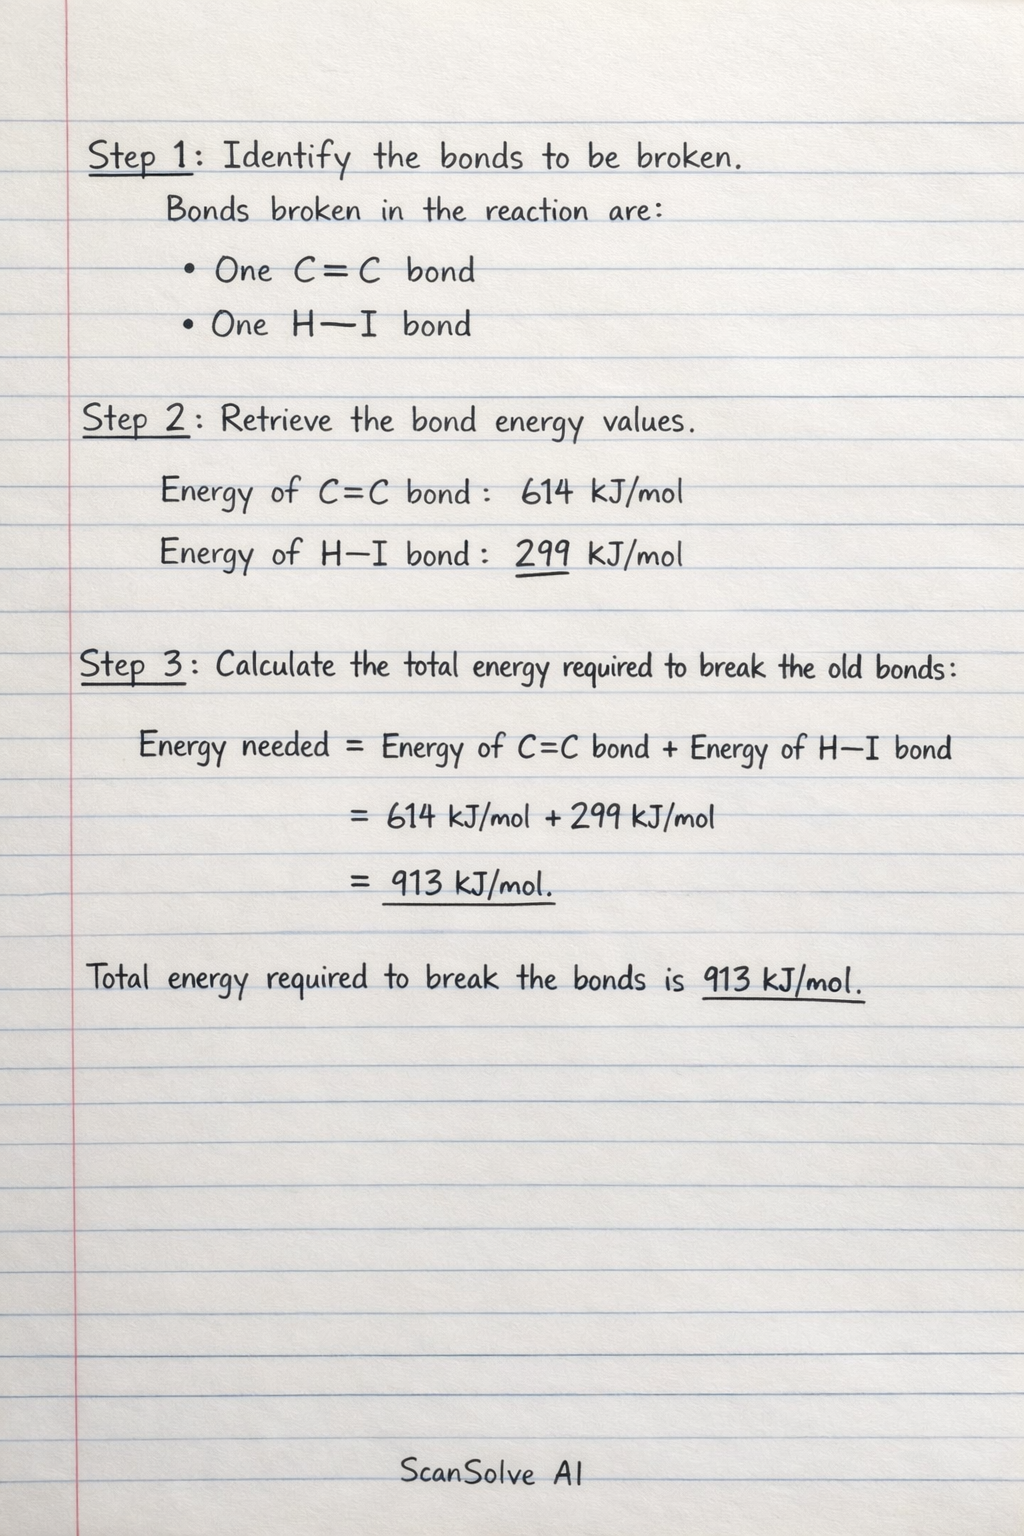 Step 1: Identify the bonds to be broken.
Bonds broken in the reaction are:
• One C=C bond
• One H—I bond
Step 2: Retrieve the bond energy values.
Energy of C=C bond: 614 kJ/mol
Energy of H—I bond: 299 kJ/mol
Step 3: Calculate the total energy required to break the old bonds:
Energy needed = Energy of C=C bond + Energy of H—I bond
= 614 kJ/mol + 299 kJ/mol
= 913 kJ/mol.
Total energy required to break the bonds is 913 kJ/mol.
ScanSolve AI